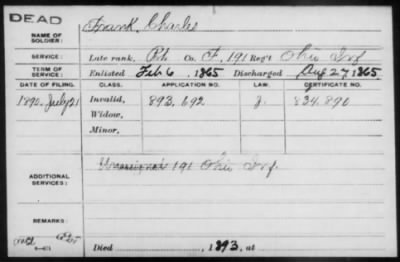 DEAD
NAME OF SOLDIER: Frank, Charles
SERVICE: Late rank, Pvt Co. F, 191 Reg't Ohio Inf
TERM OF SERVICE: Enlisted Feb 6, 1865 Discharged Aug 27, 1865
DATE OF FILING. CLASS. APPLICATION NO. LAW. CERTIFICATE NO.
1890, July 21 Invalid, 893.692 J. 834.890
Widow,
Minor,
ADDITIONAL SERVICES: 191 Ohio Inf.
REMARKS:
Died , 1893, at